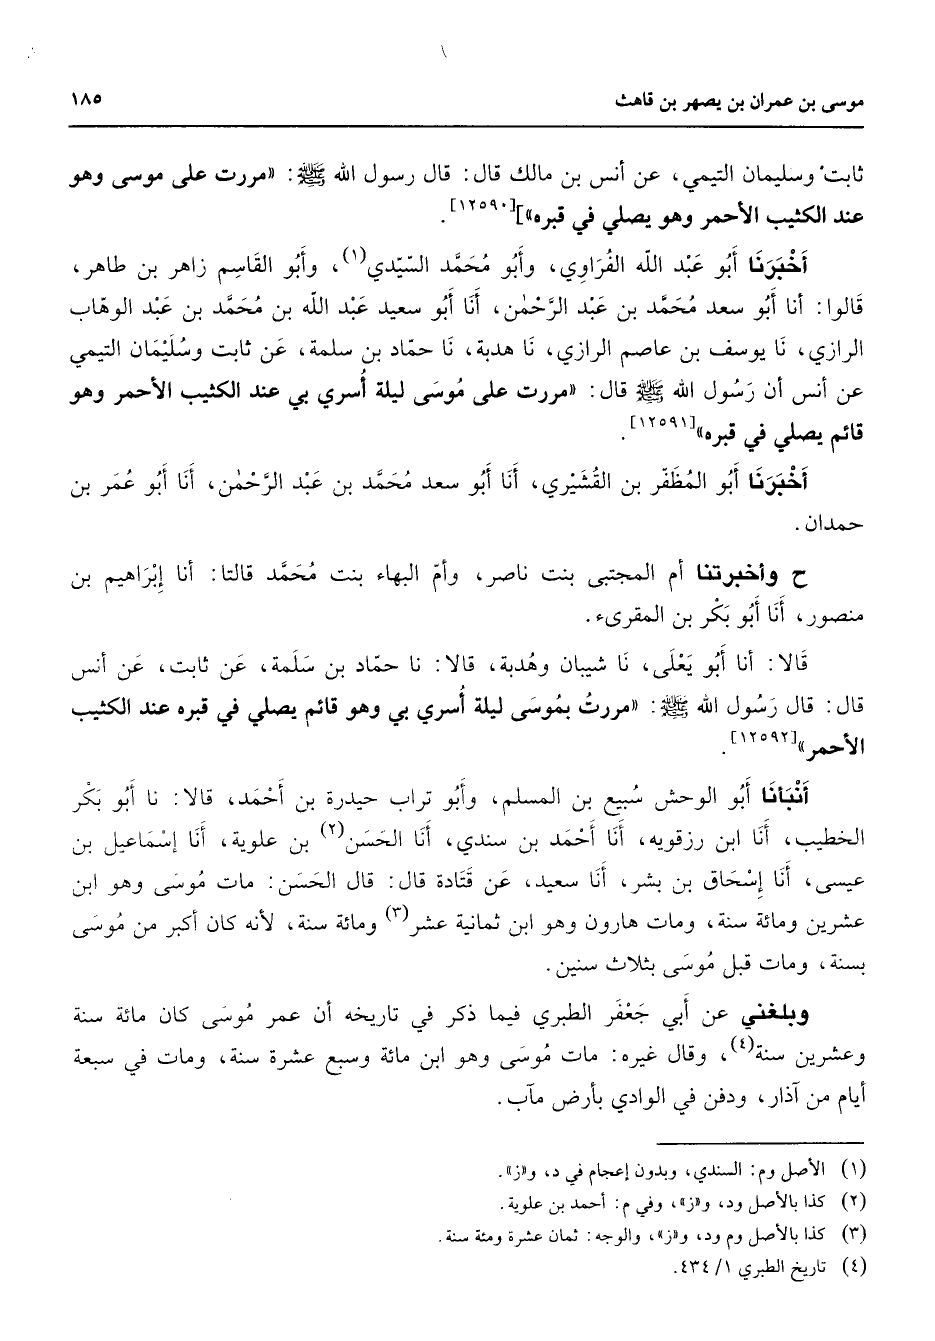 موسى بن عمران بن يصهر بن قاهث ١٨٥
ثابت وسليمان التيمي، عن أنس بن مالك قال: قال رسول الله ﷺ: «مررت على موسى وهو
عند الكثيب الأحمر وهو يصلي في قبره»][١٢٥٩٠].
أَخْبَرَنَا أَبُو عَبْد اللّه الفُرَاوِي، وأَبُو مُحَمَّد السّيّدي(١)، وأَبُو القَاسِم زاهر بن طاهر،
قَالوا: أنا أَبُو سعد مُحَمَّد بن عَبْد الرَّحْمٰن، أَنَا أَبُو سعيد عَبْد اللّه بن مُحَمَّد بن عَبْد الوهاب
الرازي، نَا يوسف بن عاصم الرازي، نَا هدبة، نَا حمّاد بن سلمة، عَن ثابت وسُلَيْمَان التيمي
عَن أنس أن رَسُول الله ﷺ قال: «مررت على مُوسَى ليلة أُسري بي عند الكثيب الأحمر وهو
قائم يصلي في قبره»[١٢٥٩١].
أَخْبَرَنَا أَبُو المُظَفّر بن القُشَيْري، أَنَا أَبُو سعد مُحَمَّد بن عَبْد الرَّحْمٰن، أَنَا أَبُو عُمَر بن
حمدان.
ح وأخبرتنا أم المجتبى بنت ناصر، وأمّ البهاء بنت مُحَمَّد قالتا: أنا إِبْرَاهيم بن
منصور، أَنَا أَبُو بَكْر بن المقرىء.
قَالا: أنا أَبُو يَعْلَى، نَا شيبان وهُدبة، قالا: نا حمّاد بن سَلَمة، عَن ثابت، عَن أنس
قال: قال رَسُول الله ﷺ: «مررتُ بمُوسَى ليلة أُسري بي وهو قائم يصلي في قبره عند الكثيب
الأحمر»[١٢٥٩٢].
أَنْبَأنَا أَبُو الوحش سُبيع بن المسلم، وأَبُو تراب حيدرة بن أَحْمَد، قالا: نا أَبُو بَكْر
الخطيب، أَنَا ابن رزقويه، أَنَا أَحْمَد بن سندي، أَنَا الحَسَن(٢) بن علوية، أَنَا إسْمَاعيل بن
عيسى، أَنَا إِسْحَاق بن بشر، أَنَا سعيد، عَن قَتَادة قال: قال الحَسَن: مات مُوسَى وهو ابن
عشرين ومائة سنة، ومات هارون وهو ابن ثمانية عشر(٣) ومائة سنة، لأنه كان أكبر من مُوسَى
بسنة، ومات قبل مُوسَى بثلاث سنين.
وبلغني عن أَبي جَعْفَر الطبري فيما ذكر في تاريخه أن عمر مُوسَى كان مائة سنة
وعشرين سنة(٤)، وقال غيره: مات مُوسَى وهو ابن مائة وسبع عشرة سنة، ومات في سبعة
أيام من آذار، ودفن في الوادي بأرض مآب.
(١) الأصل وم: السندي، وبدون إعجام في د، و«ز».
(٢) كذا بالأصل ود، و«ز»، وفي م: أحمد بن علوية.
(٣) كذا بالأصل وم ود، و«ز»، والوجه: ثمان عشرة ومئة سنة.
(٤) تاريخ الطبري ١/ ٤٣٤.